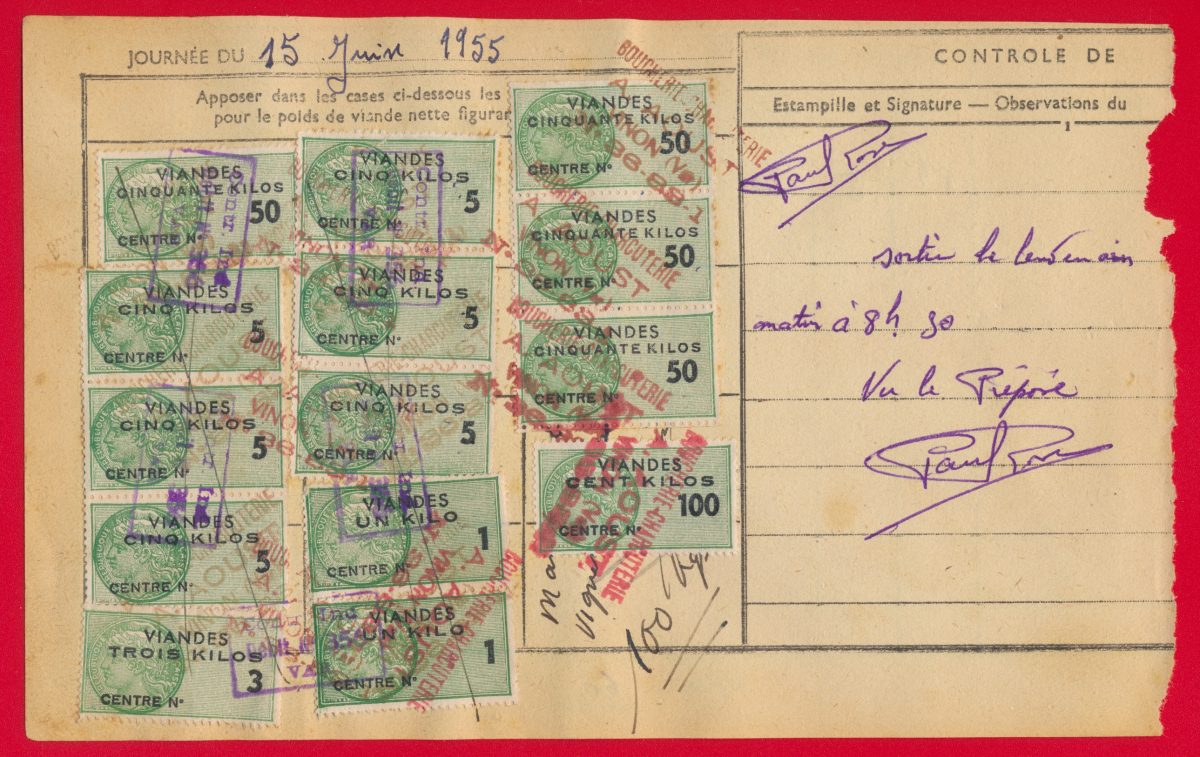 JOURNÉE DU 15 Juin 1955
Apposer dans les cases ci-dessous les
pour le poids de viande nette figuran
VIANDES
CINQUANTE KILOS
50
CENTRE Nº
VIANDES
CINQ KILOS
5
CENTRE Nº
VIANDES
CINQ KILOS
5
CENTRE Nº
VIANDES
CINQ KILOS
5
CENTRE Nº
VIANDES
TROIS KILOS
3
CENTRE Nº
VIANDES
CINQ KILOS
5
CENTRE Nº
VIANDES
CINQ KILOS
5
CENTRE Nº
VIANDES
CINQ KILOS
5
CENTRE Nº
VIANDES
UN KILO
1
CENTRE Nº
VIANDES
UN KILO
1
CENTRE Nº
VIANDES
CINQUANTE KILOS
50
CENTRE Nº
VIANDES
CINQUANTE KILOS
50
CENTRE Nº
VIANDES
CINQUANTE KILOS
50
CENTRE Nº
VIANDES
CENT KILOS
100
CENTRE Nº
BOUCHERIE-CHARCUTERIE
A. AOUST
VIMON
100 kg
CONTROLE DE
Estampille et Signature — Observations du
1
Paul
sortir le lendemain
matin à 8h 30
Vu le Préposé
Paul